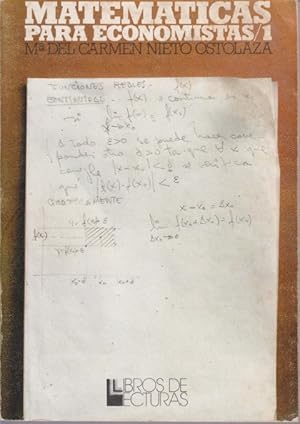 MATEMATICAS
PARA ECONOMISTAS/1
Mª DEL CARMEN NIETO OSTOLAZA
FUNCIONES REALES. f(x)
CONTINUIDAD. f(x) continua
lim f(x) = f(x₀)
x→x₀
A todo ε>0 se puede hacer
otro δ>0 tal que ∀ x que
|x-x₀| < δ
que |f(x)-f(x₀)| < ε
GRAFICAMENTE
x-x₀ = Δx₀
lim f(x₀+Δx₀) = f(x₀)
Δx₀→0
f(x₀)
LIBROS DE
LECTURAS